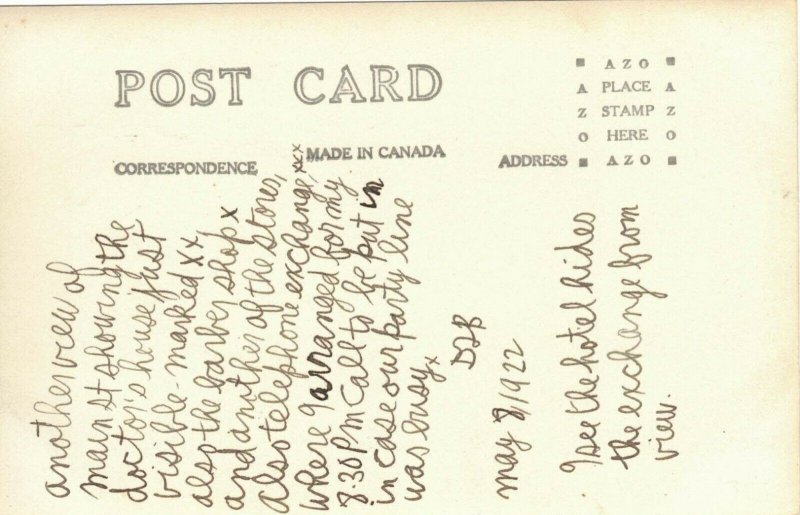 POST CARD
CORRESPONDENCE
MADE IN CANADA
ADDRESS
AZO
A PLACE A
Z STAMP Z
O HERE O
AZO
another view of
main st showing the
doctor's house just
visible - marked xx
also the barber shop x
and another of the stores,
Also telephone exchange, xxx
where I arranged for my
8.30 Pm call to be put in
in case our party line
was busy x
DJB
may 8/1922
I see the hotel hides
the exchange from
view.